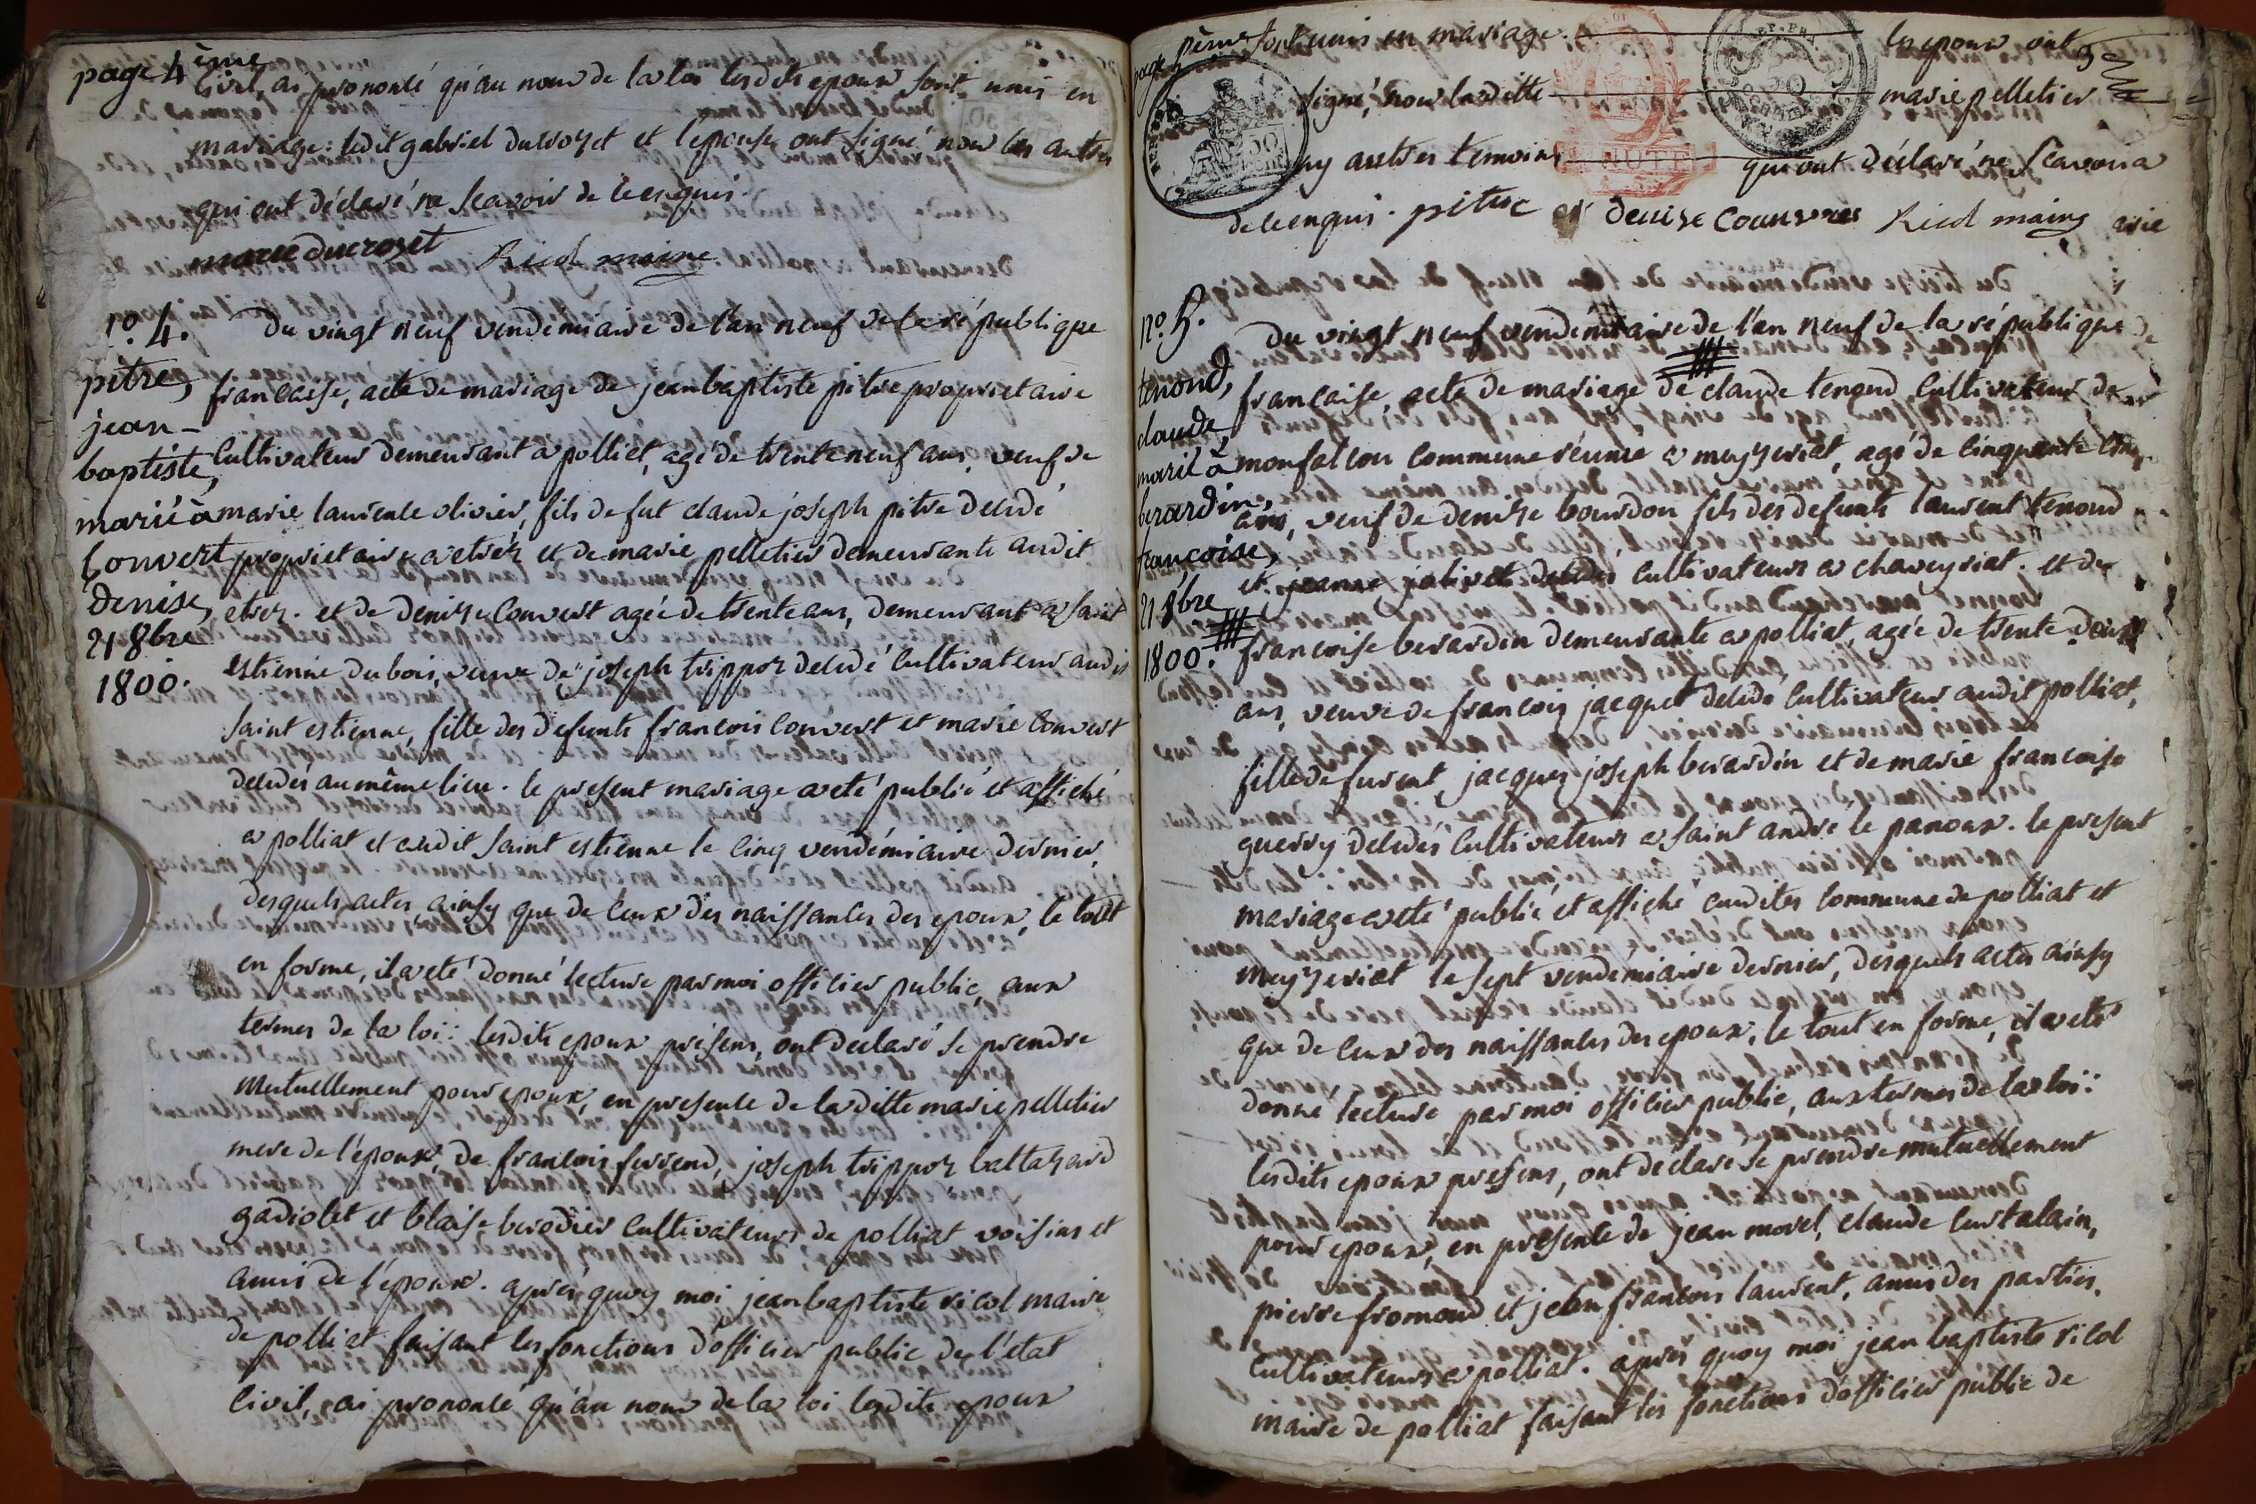 page 4ème
civil, ai prononcé qu'au nom de la loi lesdits epoux sont unis en
mariage: ledit gabriel ducroset et l'epouse ont signé non les autres
qui ont déclaré ne scavoir de ce enquis.
marie ducroset Ricol maire
no. 4.
pitre,
jean-
baptiste,
marié à
Convert
denise,
21 8bre
1800.
Du vingt neuf vendemiaire de l'an neuf de la république
francaise, acte de mariage de jean baptiste pitre proprietaire
Cultivateur demeurant a polliat, agé de trente neuf ans, veuf de
marie laurence olivier, fils de fut claude joseph pitre decedé
proprietaire a etrez et de marie pelletier demeurante audit
etrez. et de denize Convert agée de trente ans, demeurant a saint
estienne du bois, veuve de joseph trippoz decedé Cultivateur audit
saint estienne, fille des defunts francois Convert et marie Convert
decedés au même lieu. le present mariage a eté publié et affiché
a polliat et audit saint estienne le cinq vendémiaire dernier,
desquels actes, ainsy que de ceux des naissances des epoux, le tout
en forme, il a eté donné lecture par moi officier public, aux
termes de la loi: lesdits epoux présens, ont declaré se prendre
mutuellement pour epoux, en presence de laditte marie pelletier
mere de l'époux, de francois ferrend, joseph trippoz baltazard
gadiolet et blaise berodier cultivateurs de polliat voisins et
amis de l'époux. après quoy moi jean baptiste ricol maire
de polliat faisant les fonctions d'officier public de l'état
civil, ai prononcé qu'au nom de la loi lesdits epoux
page 5ème
sont unis en mariage. les epoux ont
signé, non laditte marie pelletier
ny autres temoins qui ont déclaré ne scavoir
de ce enquis. pitre denise Ricol maire
no. 5.
tenond,
claude,
marié à
berardin,
françoise,
21 8bre
1800.
Du vingt neuf vendémiaire de l'an neuf de la république
française, acte de mariage de claude tenond, Cultivateur de
monfalcon commune réunie a meyzeriat, agé de cinquante cinq
ans, veuf de denize bourdon fils des defunts laurent tenond
et jeanne jolivet decedés cultivateurs a chaveyriat. et de
francoise berardin demeurante a polliat, agée de trente deux
ans, veuve de francois jacquet decedé Cultivateur audit polliat,
fille de furent jacques joseph berardin et de marie francoise
guerry decedés Cultivateurs a saint andré le panoux. le present
mariage a eté publié et affiché audites commune de polliat et
meyzeriat le sept vendemiaire dernier, desquels actes ainsy
que de ceux des naissances des epoux, le tout en forme, il a eté
donné lecture par moi officier public, aux termes de la loi:
lesdits epoux presens, ont déclaré se prendre mutuellement
pour epoux, en presence de jean morel, claude curtalain,
pierre fromond et jean francois laurent, amis des parties,
Cultivateurs a polliat. après quoy moi jean baptiste ricol
maire de polliat faisant les fonctions d'officier public de